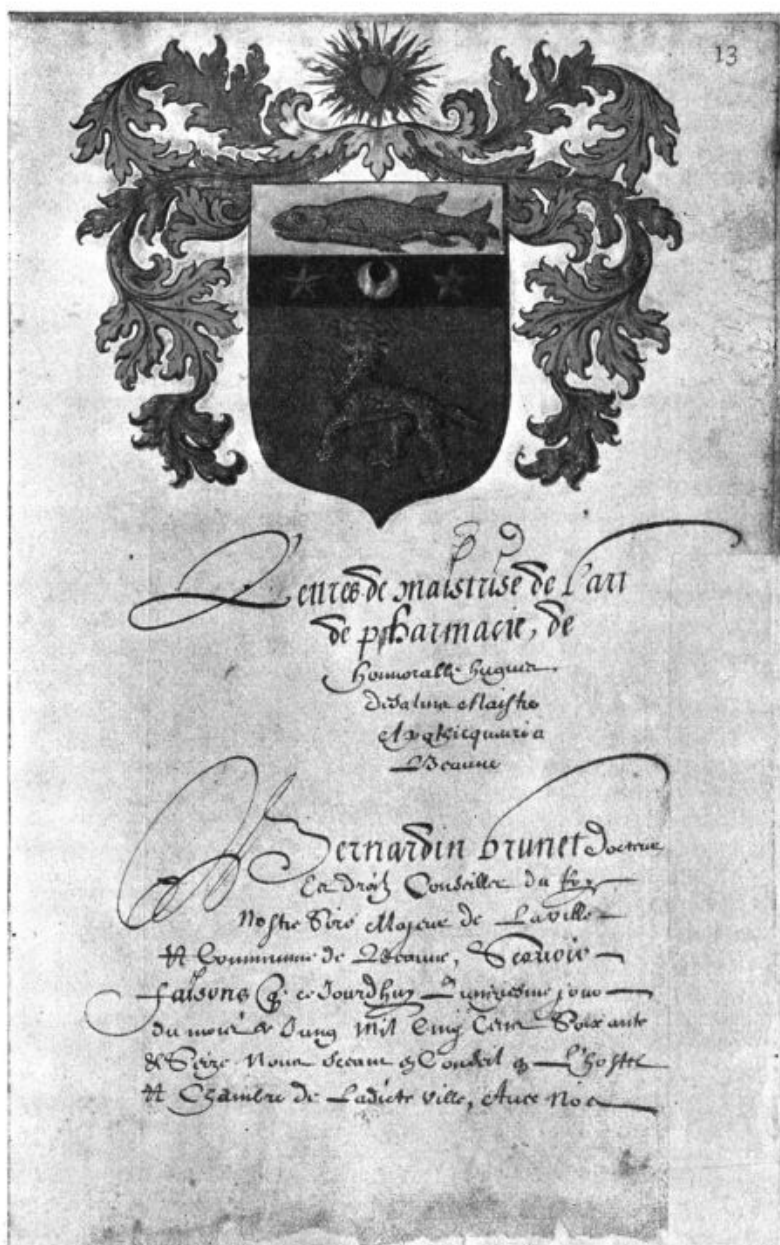 13
Lettres de maistrise de l'art
de pharmacie, de
honnorable hugues
desalins Maistre
Apothicquaire a
Beaune
Bernardin brunet docteur
Es droitz Conseiller du Roy
Nostre Sire Majeur de La ville
et Commune de Beaune, Scavoir
faisons que ce Jourdhuy jour
du mois de Juing Mil Cinq Cens Soixante
& Seize Nous seant en Conseil en L'hostel
et Chambre de Ladicte ville, Avec Nos